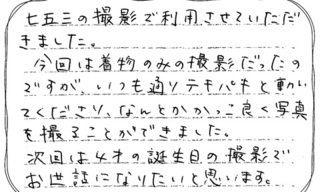 七五三の撮影で利用させていただ
きました。
今回は着物のみの撮影だったの
ですが、いつも通りテキパキと動い
てくださり、なんとかかっこ良く写真
を撮ることができました。
次回は4才の誕生日の撮影で
お世話になりたいと思います。